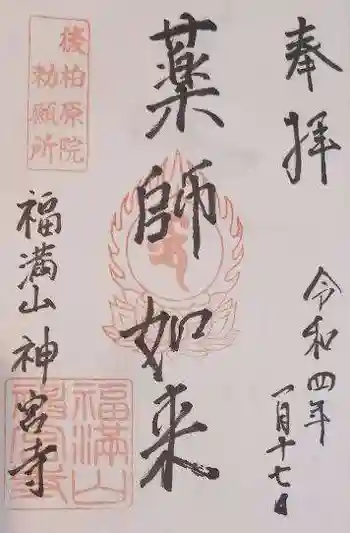 奉拝
令和四年
一月十七日
薬師如来
後柏原院
勅願所
福満山神宮寺
福満山
神宮寺